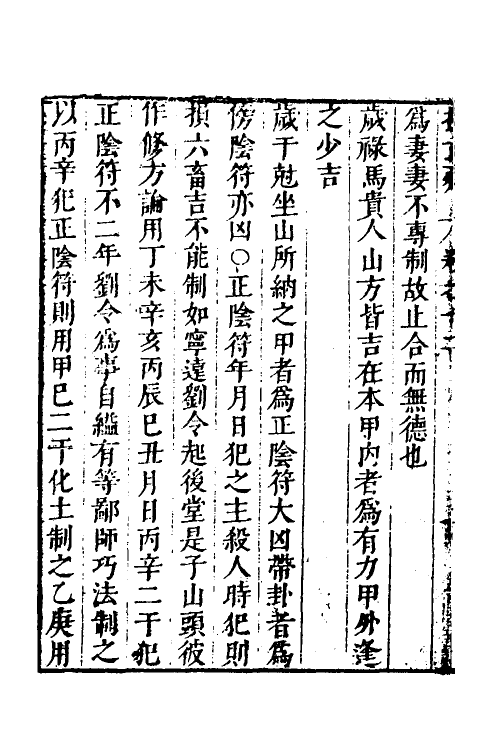 為妻妻不專制故止合而無德也
歲祿馬貴人山方皆吉在本甲內者為有力甲外逢
之少吉
歲干尅坐山所納之甲者為正陰符大凶帶卦者為
傍陰符亦凶○正陰符年月日犯之主殺人時犯則
損六畜吉不能制如寧遠劉令起後堂是子山頭彼
作修方論用丁未辛亥丙辰巳丑月日丙辛二干犯
正陰符不二年劉令為事自縊有等鄙師巧法制之
以丙辛犯正陰符則用甲巳二干化土制之乙庚用